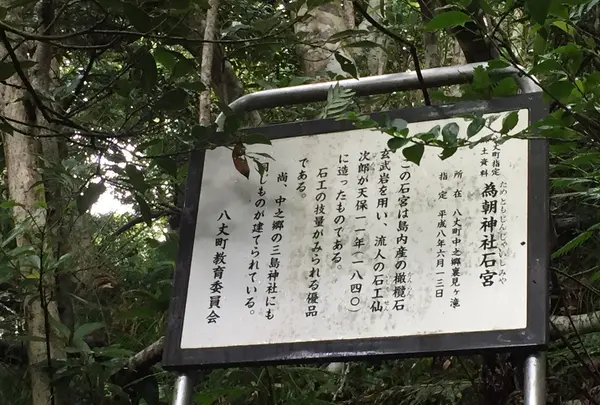 丈町指定
土資料
為朝神社石宮
ためともじんじゃいしみや
所在 八丈町中之郷裏見ヶ滝
指定 平成八年六月一三日
この石宮は島内産の橄欖石
かんらん
玄武岩を用い、流人の石工仙
次郎が天保一一年(一八四〇)
に造ったものである。
石工の技量がみられる優品
である。
尚、中之郷の三島神社にも
しものが建てられている。
八丈町教育委員会